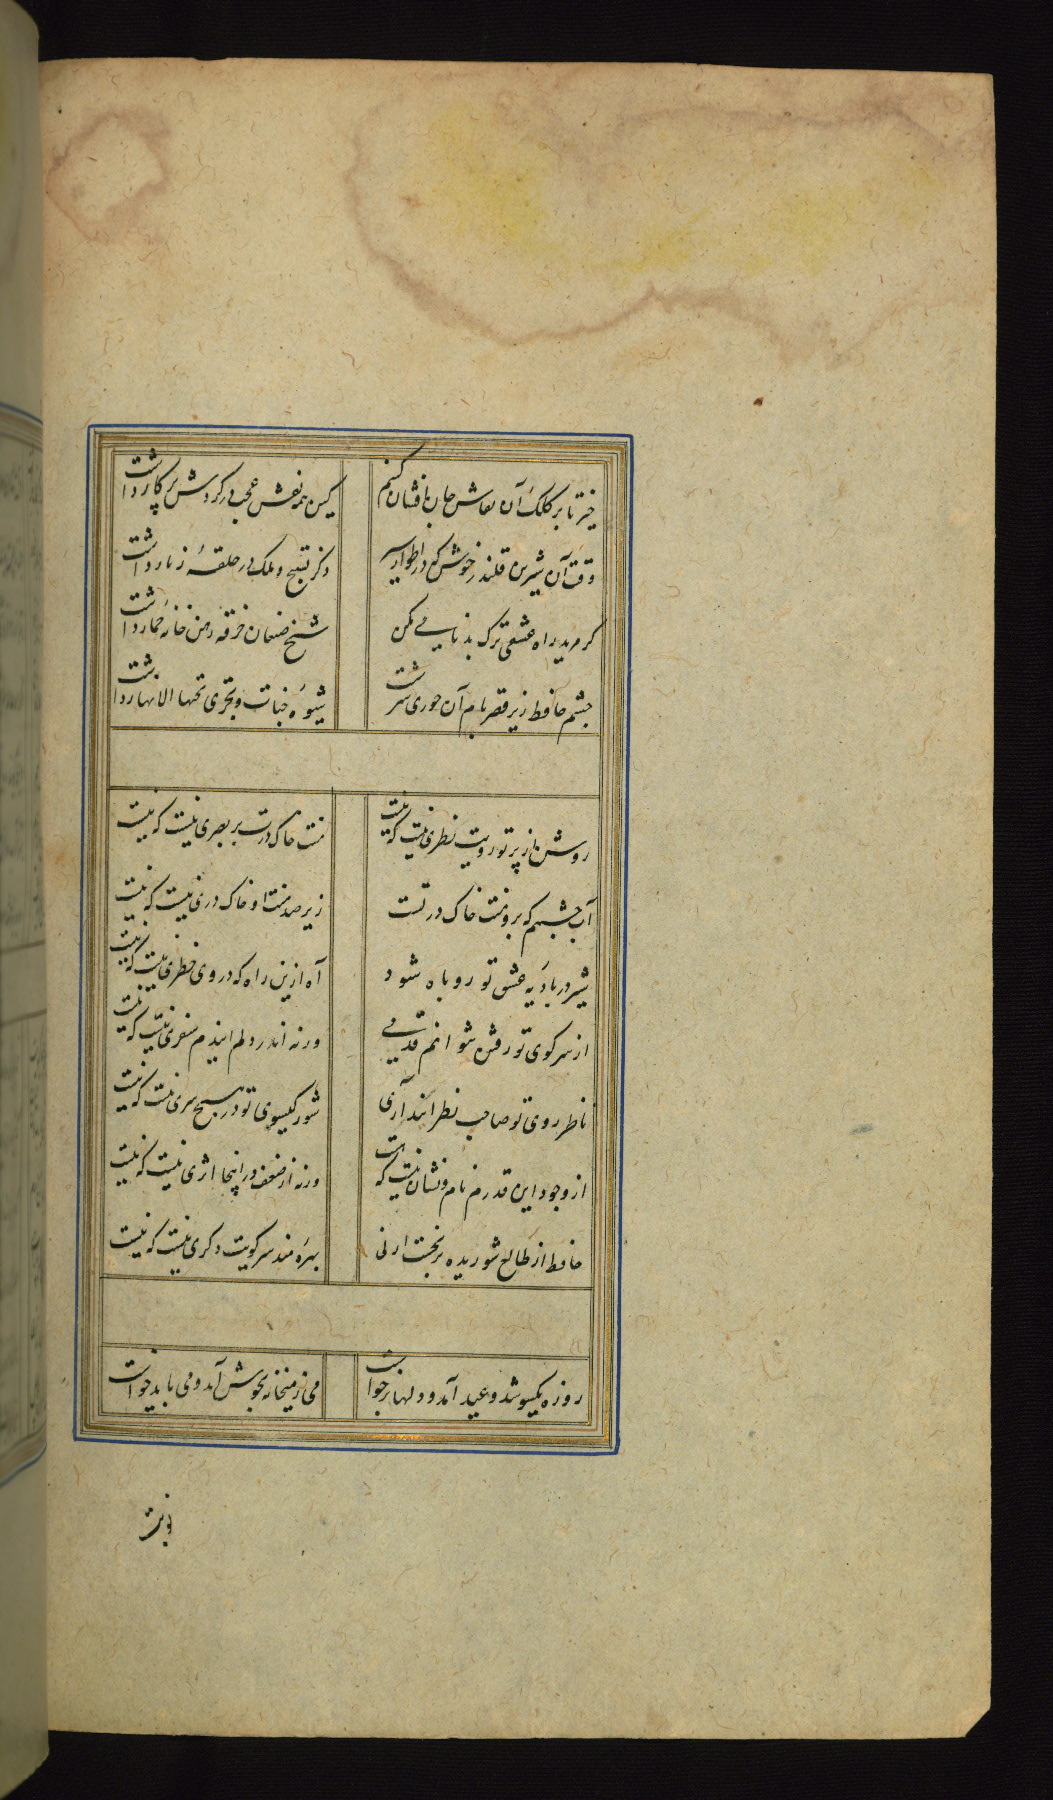 خیز تا بر کلک آن نقاش جان افشان کنیم کین همه نقش عجب در کردش پرکار داشت
وقت آن شیرین قلندر خوش که در اطوار سیر ذکر تسبیح و ملک در حلقهٔ زنار داشت
کر مرید راه عشقی ترک بدنامی مکن شیخ صنعان خرقه رهن خانهٔ خمار داشت
چشم حافظ زیر قصر بام آن حوری سرشت شیوهٔ جنات و تجری تحتها الانهار داشت
روشن از پرتو رویت نظری نیست که نیست منت خاک درت بر بصری نیست که نیست
آب چشمم که برو منت خاک در تست زیر صد منت او خاک دری نیست که نیست
شیر در بادیه عشق تو روباه شود آه ازین راه که در وی خطری نیست که نیست
از سر کوی تو رفتن نتوانم قدمی ورنه اندر دلم سفری نیست که نیست
ناظر روی تو صاحب نظرانند آری شور کیسوی تو در هیچ سری نیست که نیست
از وجود این قدرم نام و نشان نیست که هست ورنه از ضعف در اینجا اثری نیست که نیست
حافظ از طالع شوریده برنجست ارنی بهره مند سر کویت دکری نیست که نیست
روزه یکسو شد و عید آمد و دلها برخواست می ز میخانه بجوش آمد و می باید خواست
نوبت